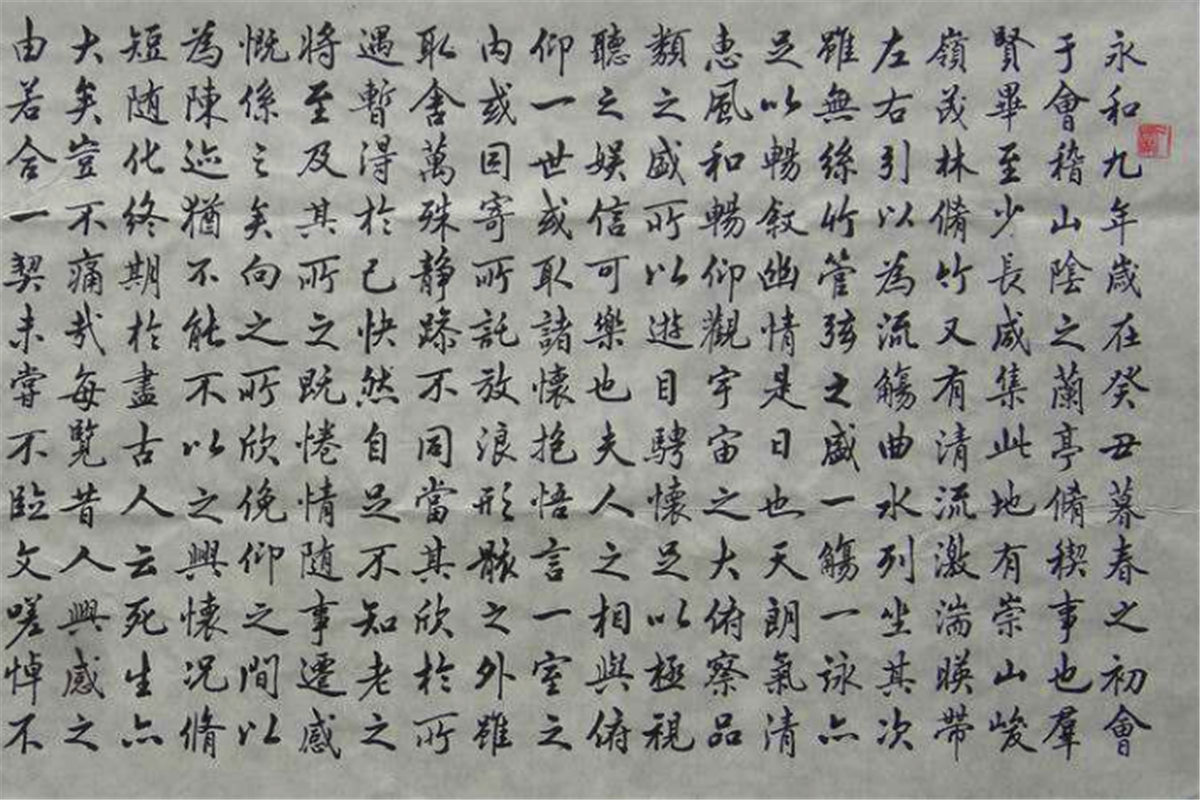 永和九年歲在癸丑暮春之初會
于會稽山陰之蘭亭脩稧事也羣
賢畢至少長咸集此地有崇山峻
嶺茂林脩竹又有清流激湍暎帶
左右引以為流觴曲水列坐其次
雖無絲竹管弦之盛一觴一詠亦
足以暢敘幽情是日也天朗氣清
惠風和暢仰觀宇宙之大俯察品
類之盛所以遊目騁懷足以極視
聽之娛信可樂也夫人之相與俯
仰一世或取諸懷抱悟言一室之
內或因寄所託放浪形骸之外雖
取舍萬殊靜躁不同當其欣於所
遇暫得於己快然自足不知老之
將至及其所之既惓情隨事遷感
慨係之矣向之所欣俛仰之間以
為陳迹猶不能不以之興懷況脩
短隨化終期於盡古人云死生亦
大矣豈不痛哉每覽昔人興感之
由若合一契未嘗不臨文嗟悼不